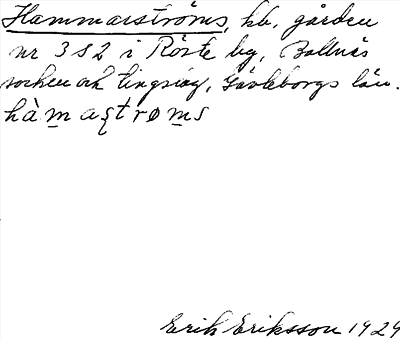 Hammarströms, hb. gården
nr 3 S2 i Röste by, Bollnäs
socken och tingslag, Gävleborgs län.
hàmaʂtrøms
Erik Eriksson 1929